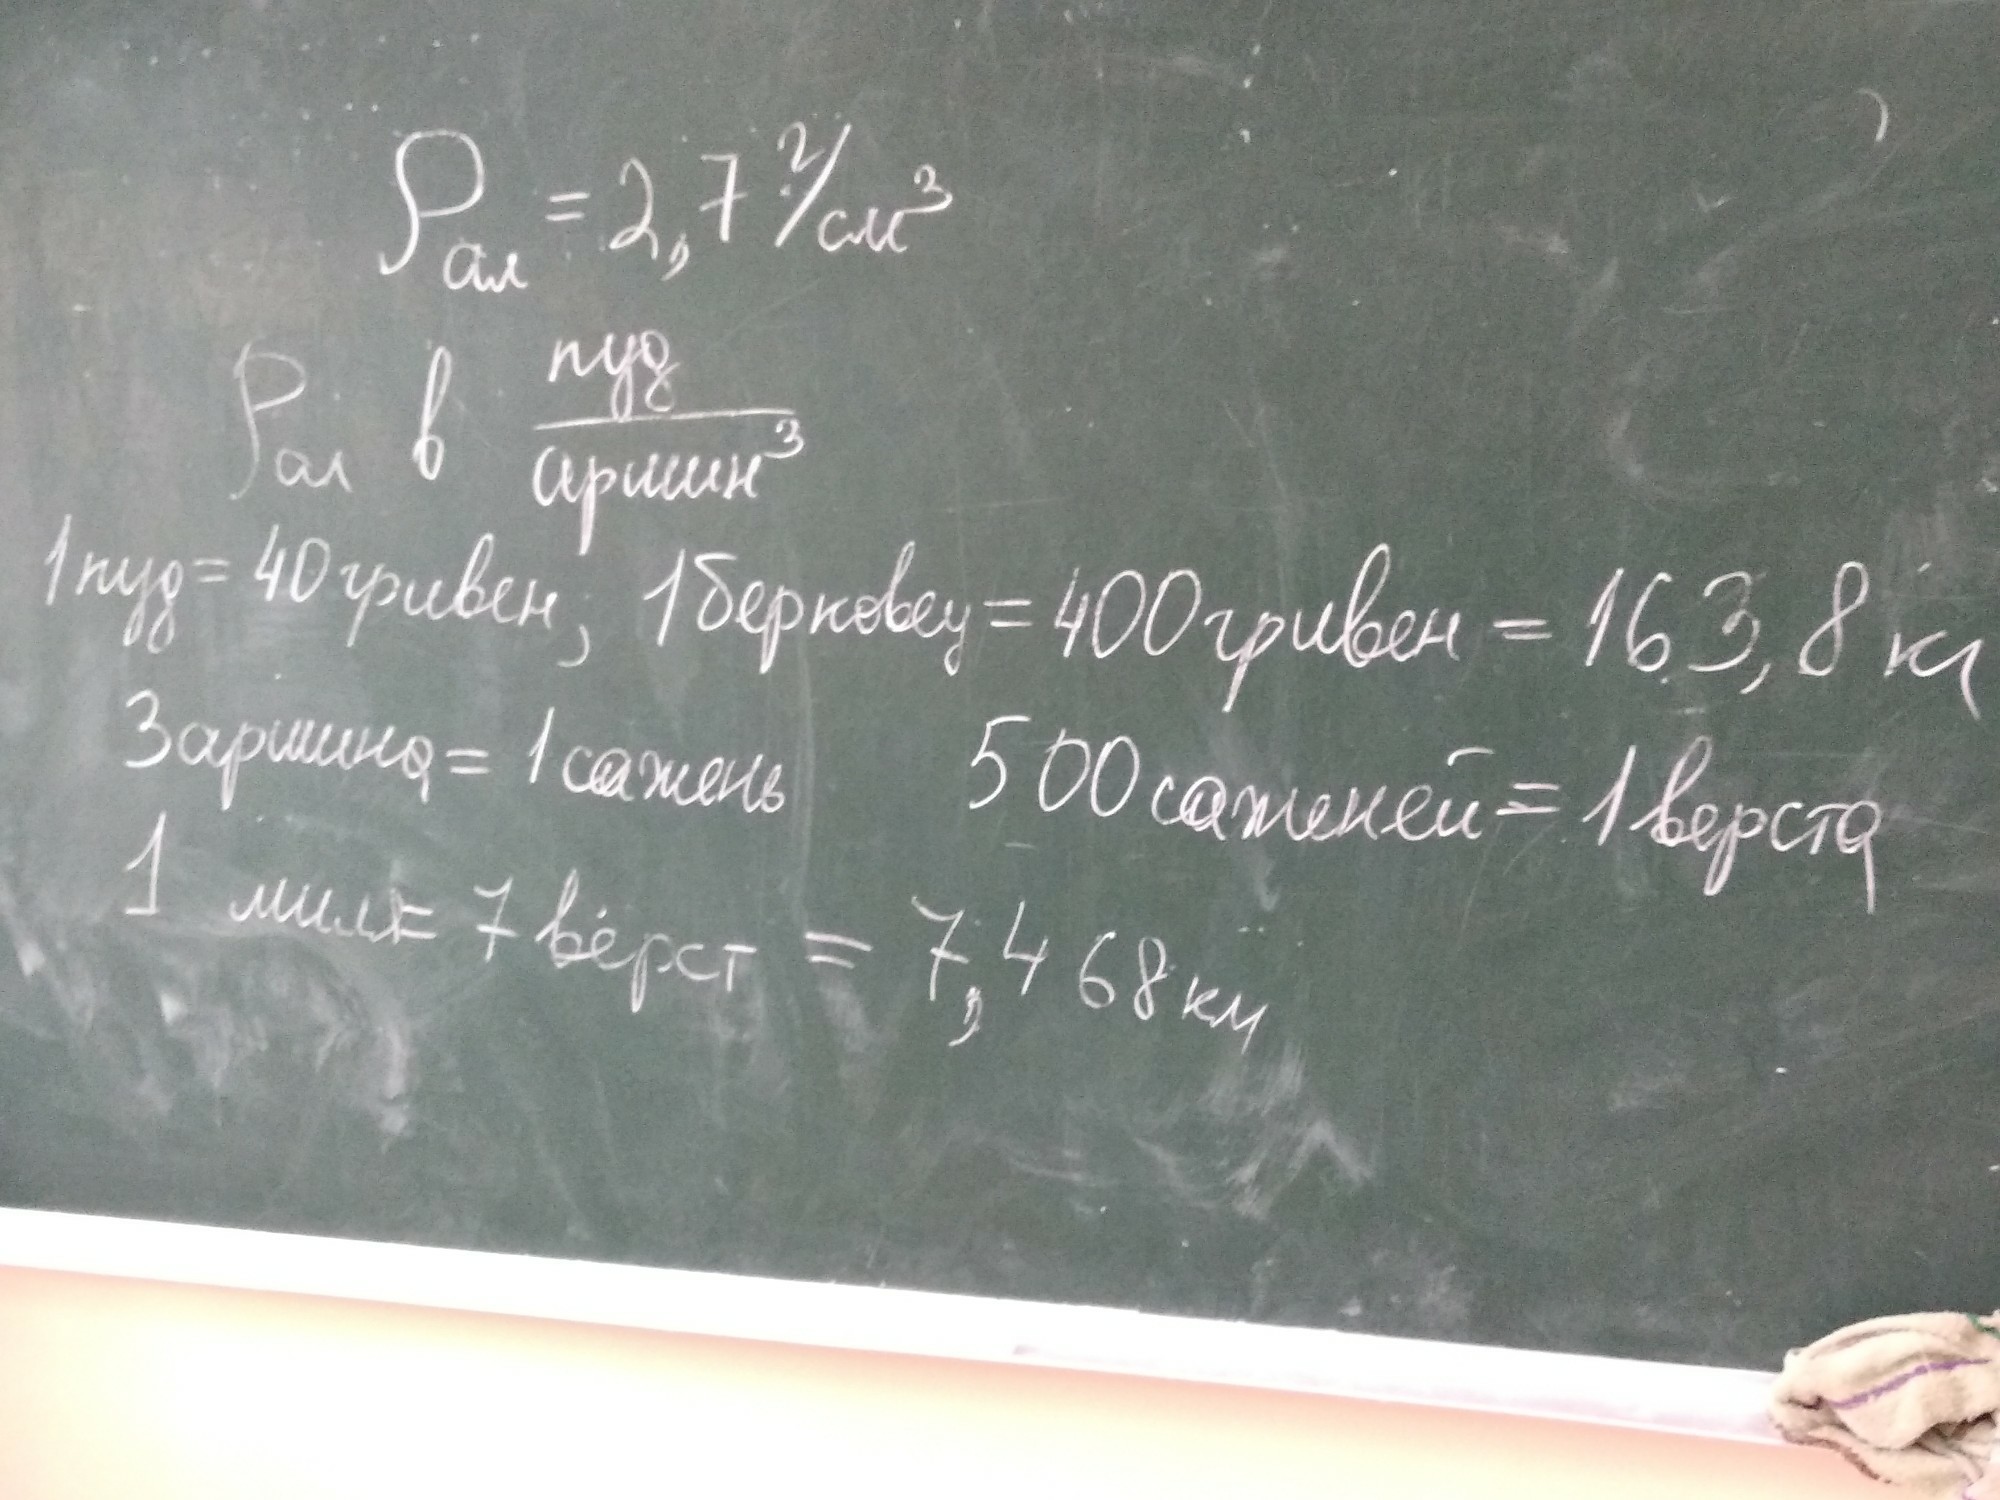 ρал = 2,7 г/см³
ρал в пуд/аршин³
1 пуд = 40 гривен; 1 берковец = 400 гривен = 163,8 кг
3 аршина = 1 сажень 500 саженей = 1 верста
1 миля = 7 вёрст = 7,468 км